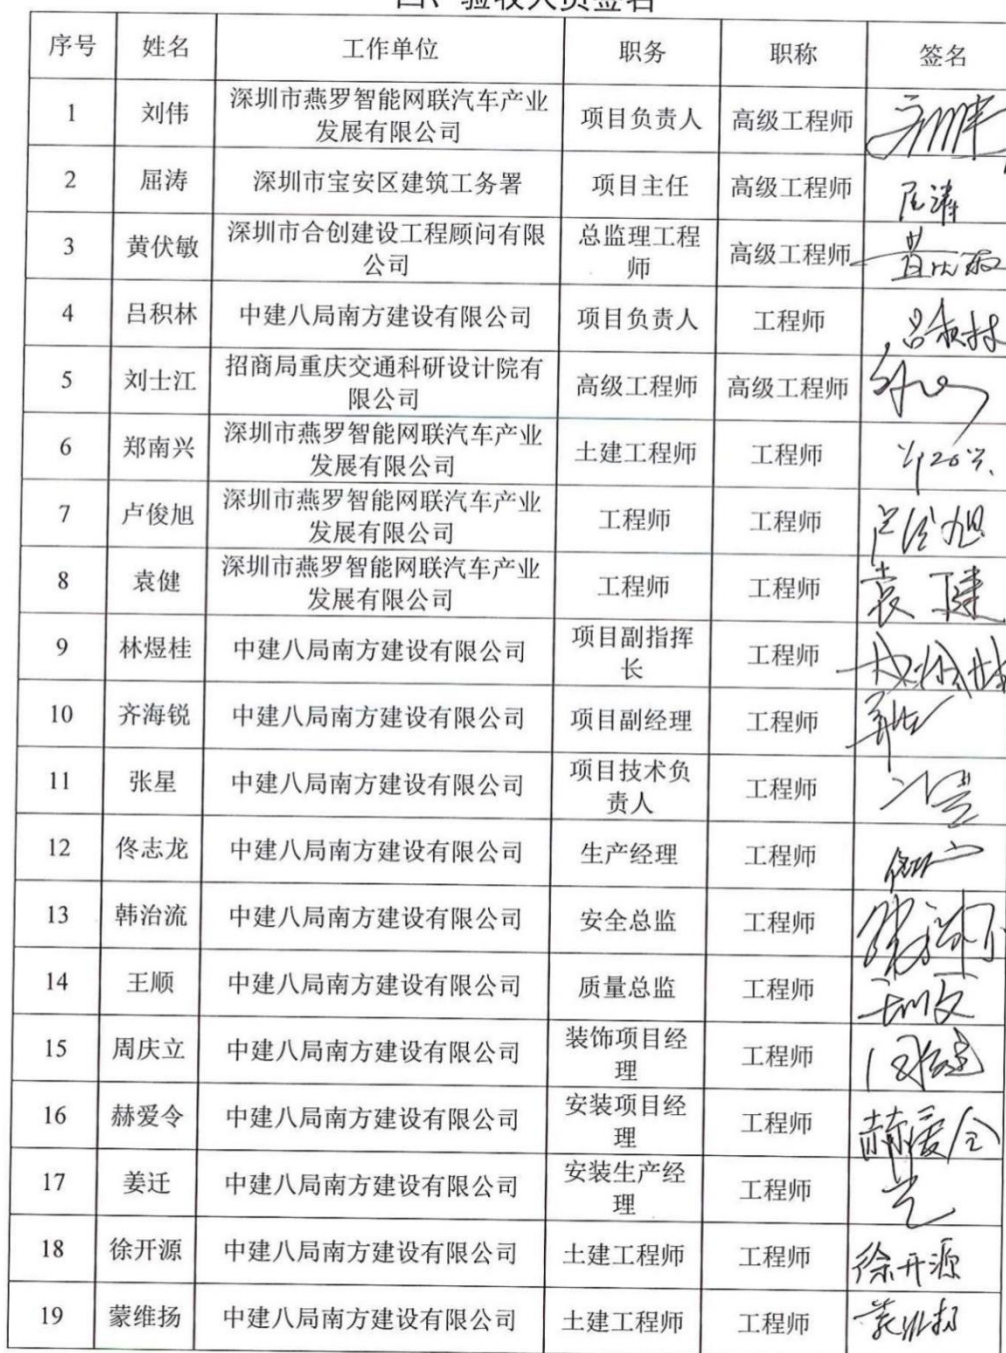 四、验收人员签名
序号 姓名 工作单位 职务 职称 签名
1 刘伟 深圳市燕罗智能网联汽车产业 项目负责人 高级工程师
发展有限公司
2 屈涛 深圳市宝安区建筑工务署 项目主任 高级工程师 屈涛
3 黄伏敏 深圳市合创建设工程顾问有限 总监理工程 高级工程师 黄伏敏
公司 师
4 吕积林 中建八局南方建设有限公司 项目负责人 工程师 吕积林
5 刘士江 招商局重庆交通科研设计院有 高级工程师 高级工程师
限公司
6 郑南兴 深圳市燕罗智能网联汽车产业 土建工程师 工程师
发展有限公司
7 卢俊旭 深圳市燕罗智能网联汽车产业 工程师 工程师 卢俊旭
发展有限公司
8 袁健 深圳市燕罗智能网联汽车产业 工程师 工程师 袁健
发展有限公司
9 林煜桂 中建八局南方建设有限公司 项目副指挥 工程师
长
10 齐海锐 中建八局南方建设有限公司 项目副经理 工程师
11 张星 中建八局南方建设有限公司 项目技术负 工程师
责人
12 佟志龙 中建八局南方建设有限公司 生产经理 工程师
13 韩治流 中建八局南方建设有限公司 安全总监 工程师
14 王顺 中建八局南方建设有限公司 质量总监 工程师
15 周庆立 中建八局南方建设有限公司 装饰项目经 工程师
理
16 赫爱令 中建八局南方建设有限公司 安装项目经 工程师 赫爱令
理
17 姜迁 中建八局南方建设有限公司 安装生产经 工程师
理
18 徐开源 中建八局南方建设有限公司 土建工程师 工程师 徐开源
19 蒙维扬 中建八局南方建设有限公司 土建工程师 工程师 蒙维扬